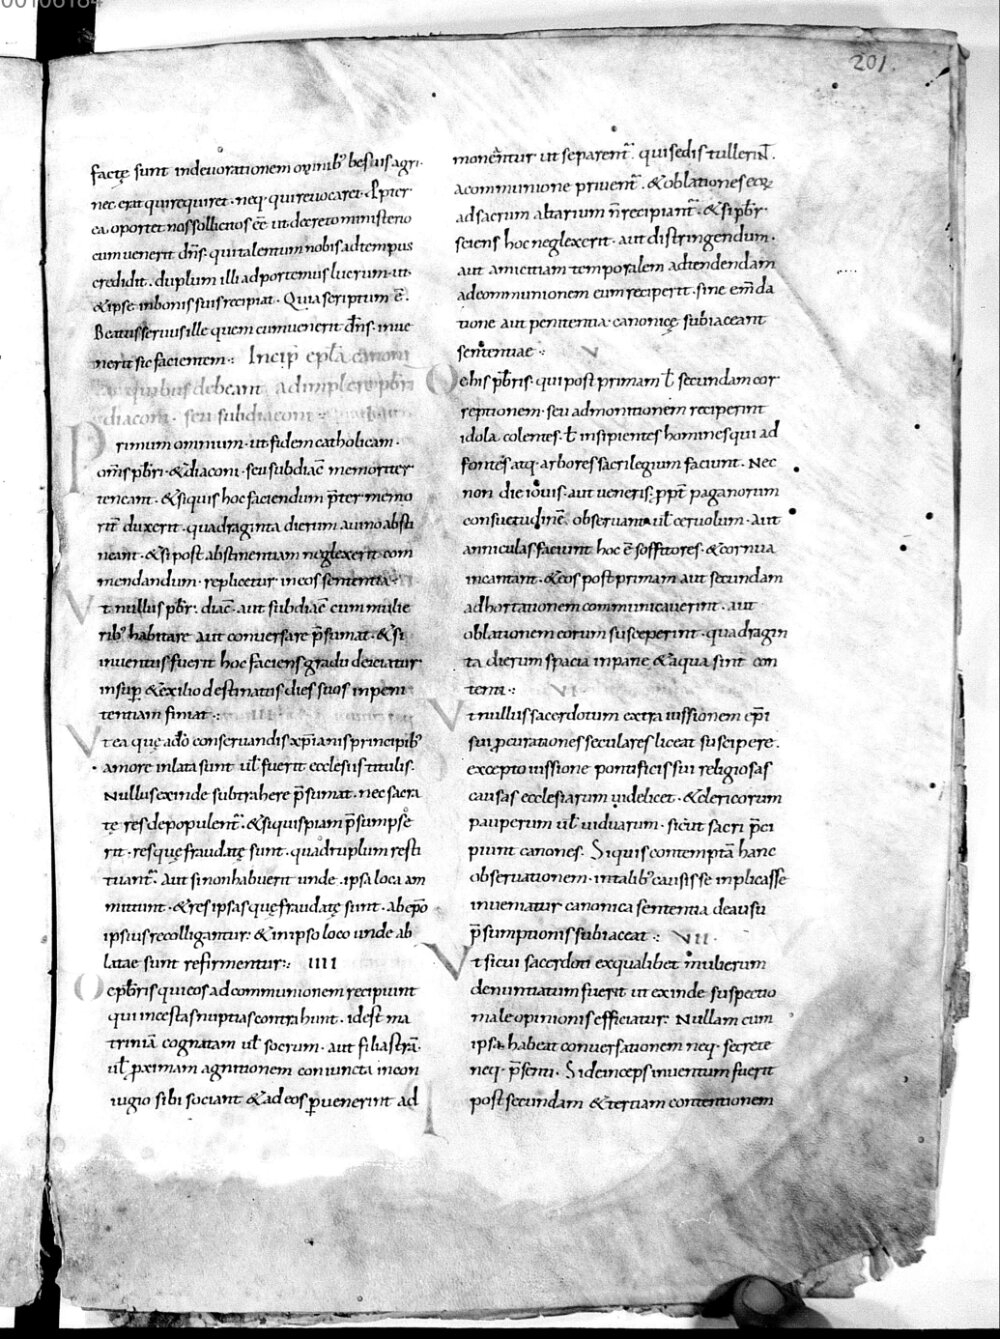 201.
factę sunt indeuorationem omnib; bestiis agri.
nec erat quirequiret. neq· quireuocaret. Ppter
ea. oportet nos sollicitos eē ut decreto ministerio
cum uenerit dn̄s. qui talentum nobis ad tempus
credidit. duplum illi adportemus lucrum. ut
& ipse in bonis suis recipiat. Quia scriptum ē.
Beatus seruus ille quem cum uenerit dn̄s. inue
nerit sic facientem. Incip̄ epl̄a canoni
quibus debeant adimplere p̄bri
diaconi. seu subdiaconi
Primum omnium. ut fidem catholicam.
om̄s p̄bri. & diaconi. seu subdiac̄ memoriter
teneant. & siquis hoc faciendum p̄ter memo
rit̄ duxerit. quadraginta dierum a uino absti
neant. & si post abstinentiam neglexerit com
mendandum. replicetur in eos sententia.
Vt nullus p̄br. diac̄. aut subdiac̄ cum mulie
rib; habitare aut conuersare p̄sumat. & si
inuentus fuerit hoc faciens gradu deiciatur
insup̱ & exilio destinatus dies suos in peni
tentiam finiat. III
Vt ea quę ad̄o conseruandis xp̄ianis principib;
amore inlata sunt ul̄ fuerit ecclesiis titulis.
Nullus exinde subtrahere p̄sumat. nec sacra
tę res depopulent̄. & si quispiam p̄sumpse
rit. res quę fraudatę sunt. quadruplum resti
tuant̄. Aut si non habuerit unde. ipsa loca am
mittunt. & res ipsas quę fraudatę sunt. ab ep̄o
ipsius recolligantur. & in ipso loco unde ab
latae sunt refirmentur. IIII
De p̄bris qui eos ad communionem recipiunt
qui incestas nuptias contrahunt. id est ma
triniā cognatam ul̄ socrum. aut filiastrā.
ul̄ p̱ximam agnitionem coniuncta in con
iugio sibi sociant & ad eos p̱uenerint ad
monentur ut separent̄. qui sedis tullerin̄t.
a communione priuent̄. & oblationes eoꝝ
ad sacrum altarium n̄ recipiant̄. & si p̄br.
sciens hoc neglexerit. aut distringendum.
aut amicitiam temporalem adtendendam
ad communionem eum reciperit. sine em̄da
tione aut penitentia. canonicę subiaceant
sententiae. V
De his p̄bris. qui post primam l̄ secundam cor
reptionem. seu admonitionem reciperint
idola colentes. l̄ insipientes homines qui ad
fontes atq· arbores sacrilegium faciunt. Nec
non die iouis. aut ueneris. ppt̄ paganorum
consuetudinē. obseruant ul̄ ceruolum. aut
anniculas faciunt hoc ē soffitores. & cornua
incantant. & eos post primam aut secundam
adhortationem communicauerint. aut
oblationem eorum susceperint. quadragin
ta dierum spacia in pane & aqua sint con
tenti. VI
Vt nullus sacerdotum extra iussionem ep̄i
sui p̱curationes seculares liceat suscipere.
excepto iussione pontificis sui religiosas
causas ecclesiarum uidelicet. & clericorum
pauperum ul̄ uiduarum. sicut sacri p̄ci
piunt canones. Siquis contempta hanc
obseruationem. in talib; causis se inplicasse
inuenιatur canonica sententia de ausu
p̄sumptionis subiaceat. VII.
Vt sicui sacerdoti exqualibet mulierum
denuntiatum fuerit ut exinde suspectio
male opinionis efficiatur. Nullam cum
ipsa habeat conuersationem neq· secrete
neq· p̄senti. Si deinceps inuentum fuerit
post secundam & tertiam contentionem